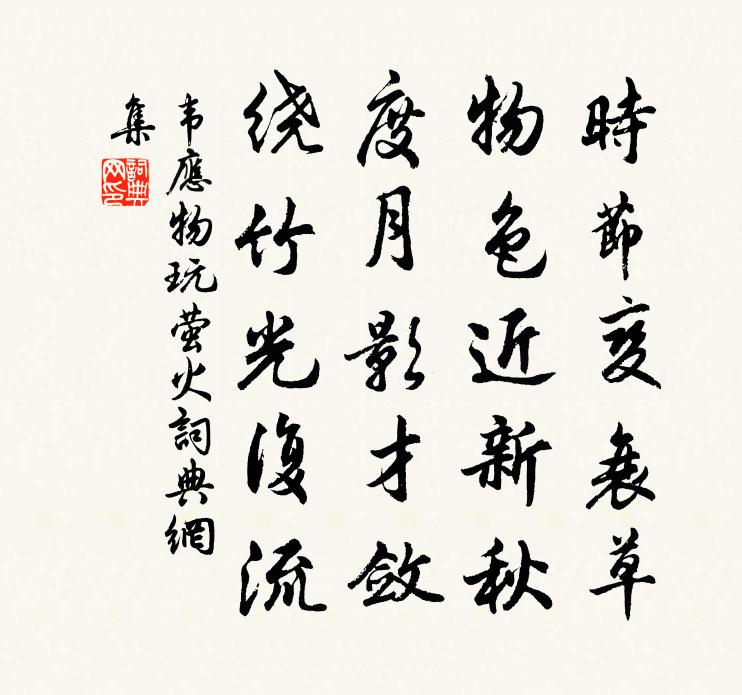 時節變衰草
物色近新秋
度月影才斂
绕竹光復流
韦應物玩萤火詞典網
集
詞典網印